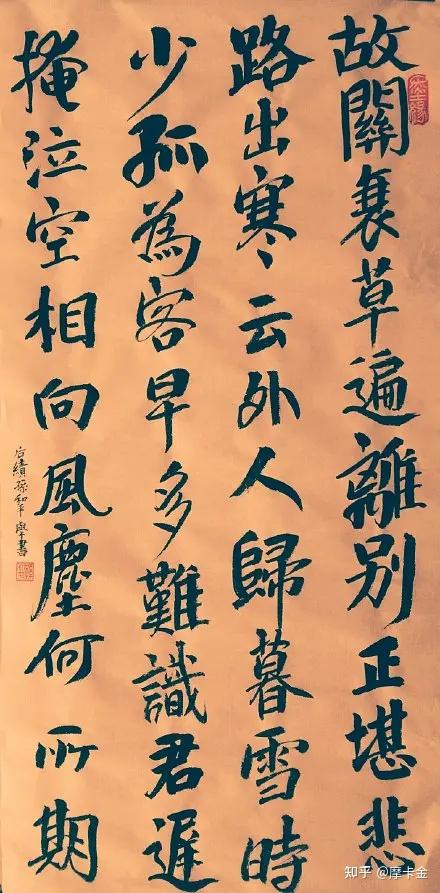 故關衰草遍離别正堪悲
路出寒云外人歸暮雪時
少孤為客早多難識君遲
掩泣空相向風塵何所期
書
知乎 @摩卡金